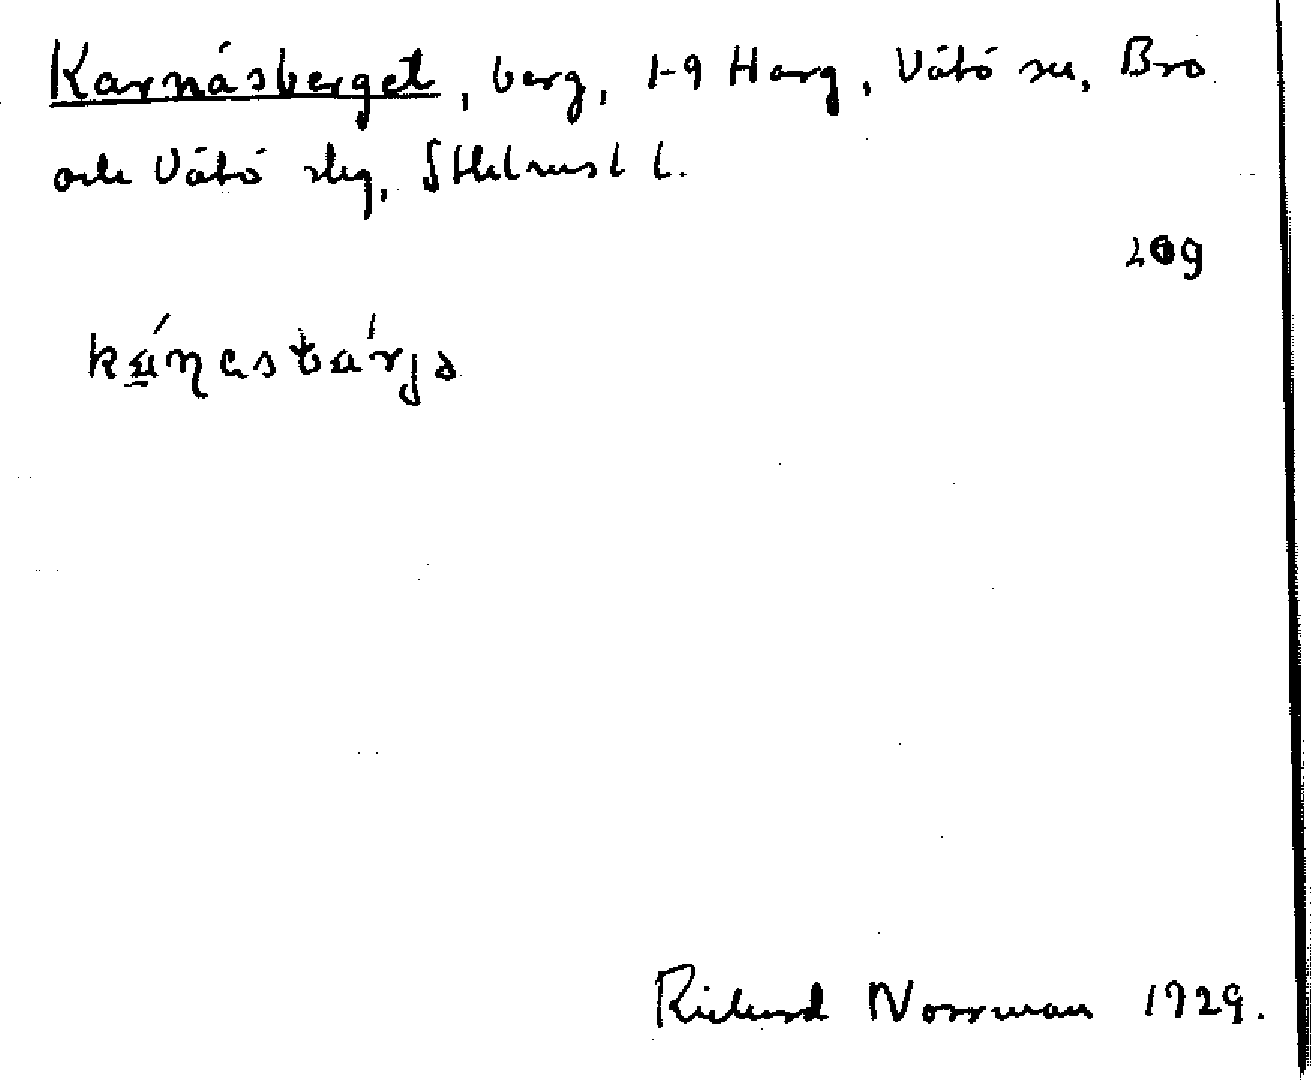 Karnäsberget, berg, 1-9 Harg, Vätö sn, Bro
och Vätö skg, Sthlms l.
209
Rickard Norrman 1929.